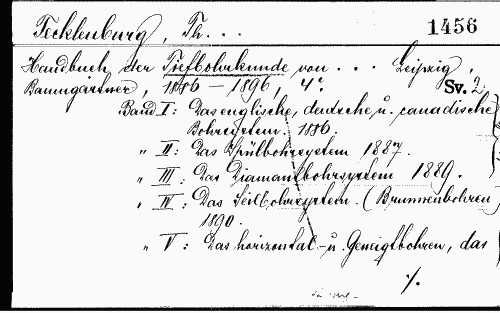 Tecklenburg, Th. . . 1456
Handbuch der Tiefbohrkunde von . . . Leipzig,
Baumgärtner, 1886 – 1896, 4°. Sv. 2
Band I: Das englische, deutsche u. canadische
Bohrsystem. 1886.
„ II: Das Spülbohrsystem 1887.
„ III: Das Diamantbohrsystem 1889.
„ IV: Das Seilbohrsystem. (Brunnenbohren)
1890.
„ V: Das horizontal- u. Geneigtbohren, das
·/.